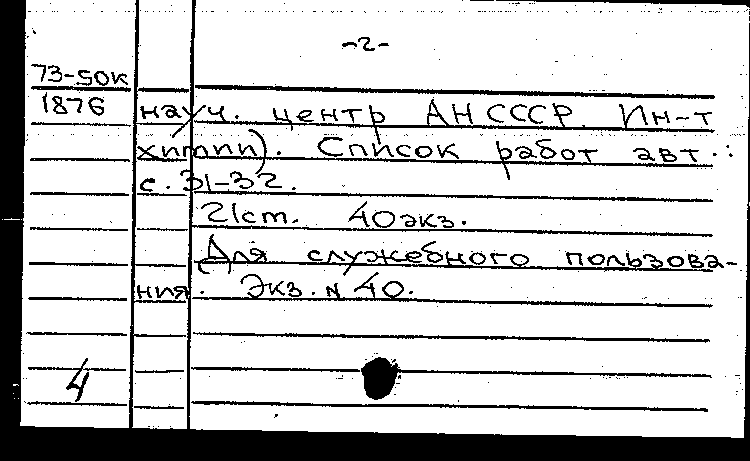 -2-
73-50к
1876
науч. центр АН СССР. Ин-т
химии). Список работ авт.:
с. 31-32.
21 ст. 40 экз.
Для служебного пользова-
ния. Экз. N 40.
4